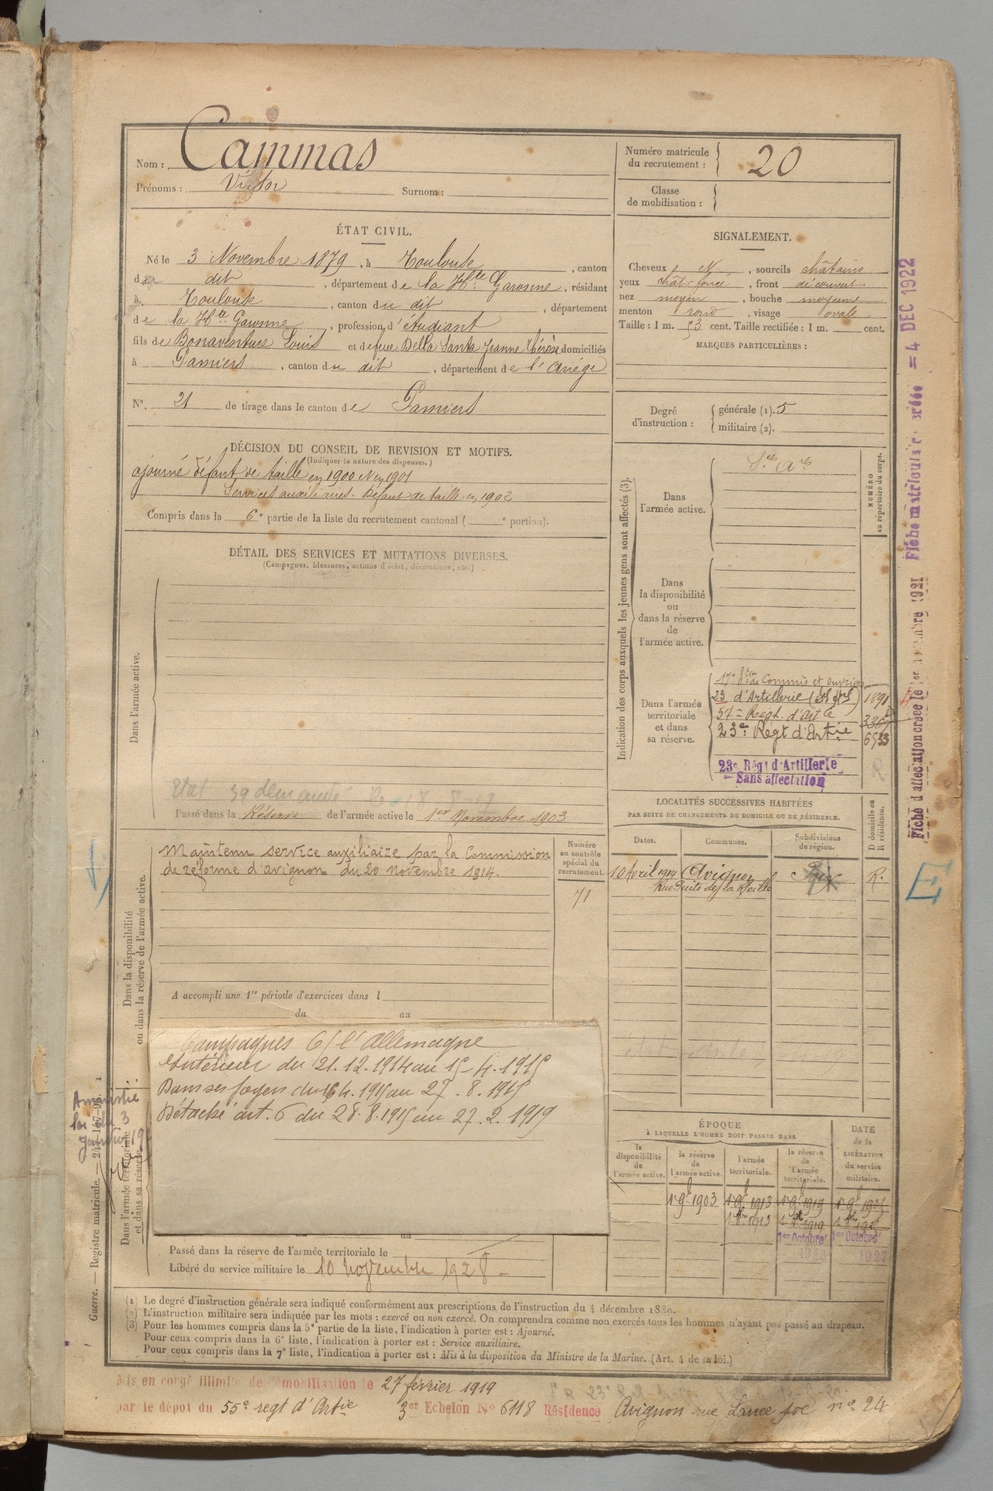 Nom : Cammas
Prénoms : Victor Surnom :
Numéro matricule du recrutement : 20
Classe de mobilisation :
ÉTAT CIVIL.
Né le 3 Novembre 1879, à Toulouse, canton
du dit, département de la Hte Garonne, résidant
à Toulouse, canton du dit, département
de la Hte Garonne, profession d'étudiant
fils de Bonaventure Louis et de feue Della Santa Jeanne Thérèse domiciliés
à Pamiers, canton du dit, département de l'Ariège
N°. 21 de tirage dans le canton de Pamiers
SIGNALEMENT.
Cheveux N, sourcils châtains
yeux chât foncé, front découvert
nez moyen, bouche moyenne
menton rond, visage ovale
Taille : 1 m. 53 cent. Taille rectifiée : 1 m. cent.
MARQUES PARTICULIÈRES :
Degré d'instruction : générale (1). 5
militaire (2).
DÉCISION DU CONSEIL DE REVISION ET MOTIFS.
(Indiquer la nature des dispenses.)
ajourné défaut de taille en 1900 et en 1901
Services auxiliaires. Défaut de taille en 1902
Compris dans la 6e partie de la liste du recrutement cantonal ( e portion).
DÉTAIL DES SERVICES ET MUTATIONS DIVERSES.
(Campagnes, blessures, actions d'éclat, décorations, etc.)
Dans l'armée active.
Passé dans la Réserve de l'armée active le 1er Novembre 1903
Indication des corps auxquels les jeunes gens sont affectés (3).
NUMÉRO au répertoire du corps.
Dans l'armée active.
Dans la disponibilité ou dans la réserve de l'armée active.
Dans l'armée territoriale et dans sa réserve.
23 d'Artillerie
23e Régt d'Artie
6533
23e Régt d'Artillerie
Sans affectation
Dans la disponibilité ou dans la réserve de l'armée active.
Maintenu service auxiliaire par la Commission
de réforme d'avignon du 20 novembre 1914.
Numéro au contrôle spécial du recrutement.
71
A accompli une 1re période d'exercices dans l
du au
LOCALITÉS SUCCESSIVES HABITÉES
PAR SUITE DE CHANGEMENTS DE DOMICILE OU DE RÉSIDENCE.
Dates. Communes. Subdivisions de région. D domicile ou R résidence.
10 Avril 1914 Avignon R.
Campagnes C/ l'Allemagne
Intérieur du 21.12.1914 au 15-4.1915
Dans ses foyers du 16.4.1915 au 27.8.1915
Détaché art. 6 du 28.8.1915 au 27.2.1919
Dans l'armée territoriale et dans sa réserve
Guerre. — Registre matricule.
Passé dans la réserve de l'armée territoriale le
Libéré du service militaire le 10 novembre 1928
ÉPOQUE
À LAQUELLE L'HOMME DOIT PASSER DANS
la disponibilité de l'armée active. la réserve de l'armée active. l'armée territoriale. la réserve de l'armée territoriale. DATE de la LIBÉRATION du service militaire.
1 9bre 1903 1 9bre 1913 1 9bre 1919
1er Octobre 1er Octobre
(1) Le degré d'instruction générale sera indiqué conformément aux prescriptions de l'instruction du 4 décembre 1889.
(2) L'instruction militaire sera indiquée par les mots : exercé ou non exercé. On comprendra comme non exercés tous les hommes n'ayant pas passé au drapeau.
(3) Pour les hommes compris dans la 5e partie de la liste, l'indication à porter est : Ajourné.
Pour ceux compris dans la 6e liste, l'indication à porter est : Service auxiliaire.
Pour ceux compris dans la 7e liste, l'indication à porter est : Mis à la disposition du Ministre de la Marine. (Art. 4 de la loi.)
Mis en congé illimité de démobilisation le 27 février 1919
par le dépôt du 55e regt d'Artie 3er Echelon No 6118 Résidence Avignon rue no 24
Fiche matricule créée = 4 DEC 1922
Fiche d'affectation créée le 1921
E